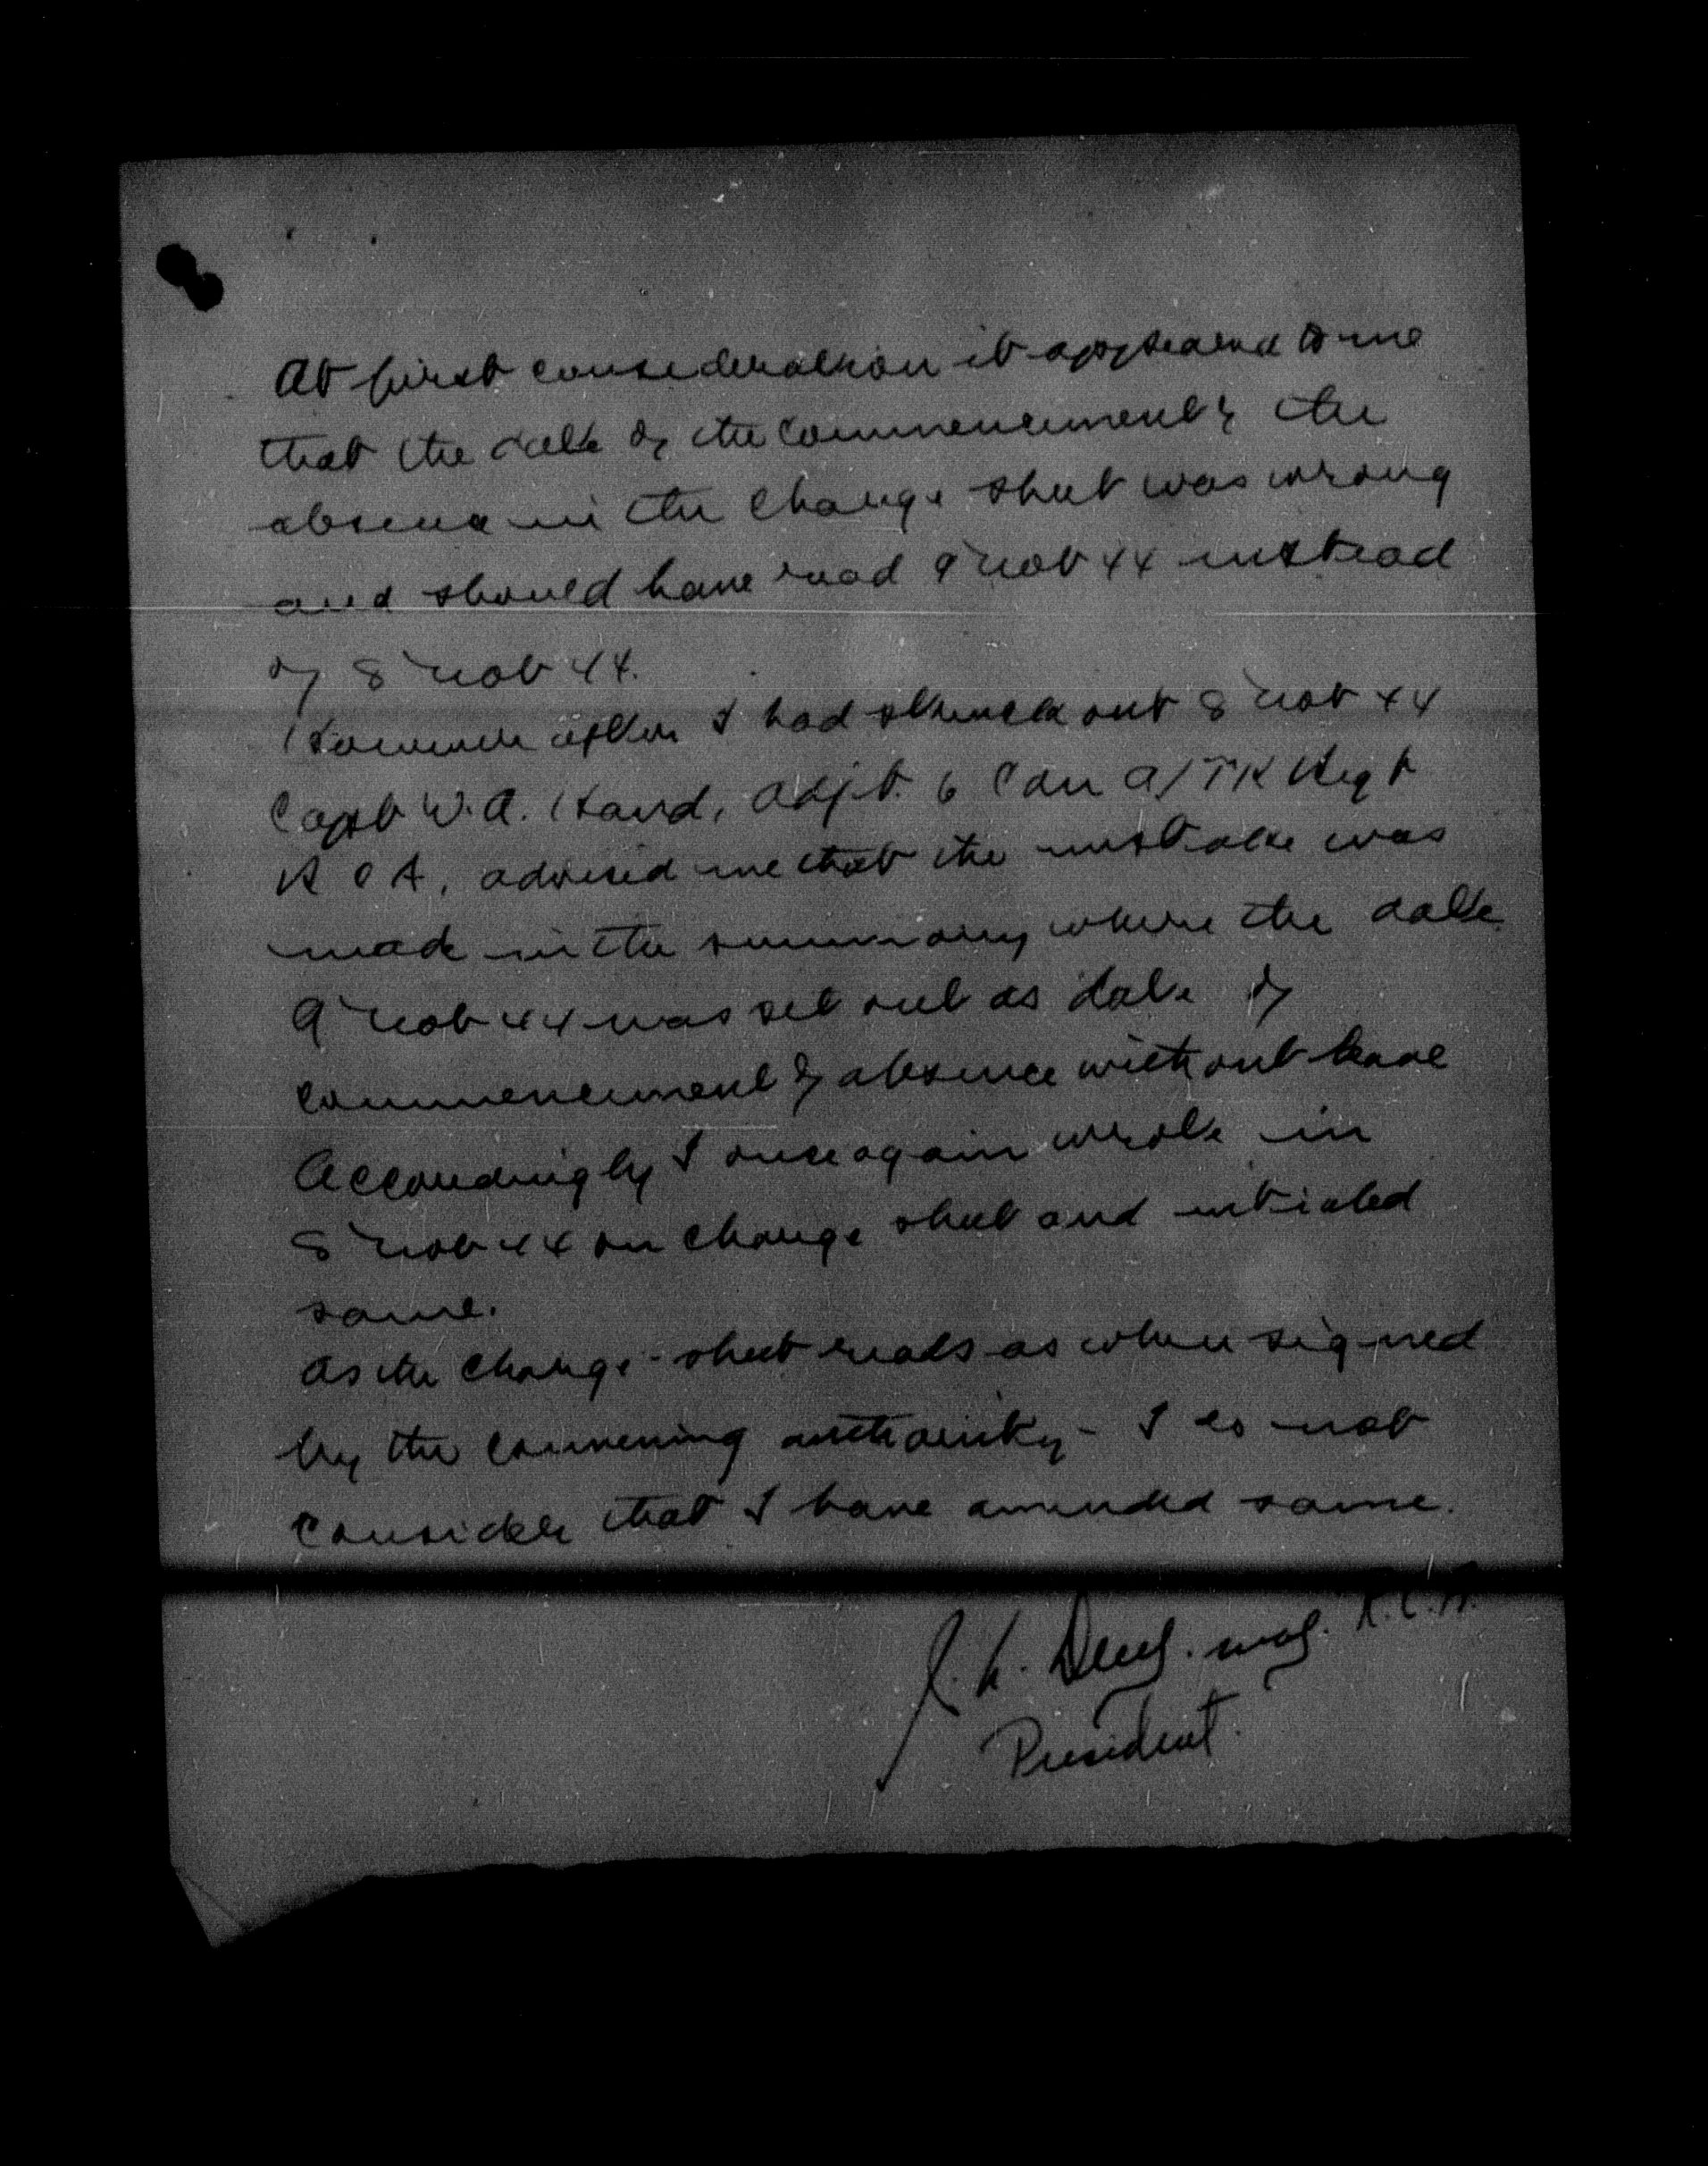 At first consideration it appeared to me
that the date of the commencement of the
absence in the charge sheet was wrong
and should have read 9 Nov 44 instead
of 8 Nov 44.
However after I had struck out 8 Nov 44
Capt W.A. Hand, Adjt. 6 Cdn A/TK Regt
RCA, advised me that the mistake was
made in the summary where the date
9 Nov 44 was set out as date of
commencement of absence without leave
Accordingly I once again wrote in
8 Nov 44 on charge sheet and initialed
same.
As the charge-sheet reads as when signed
by the convening authority - I do not
consider that I have amended same.
Maj. R.C.A.
President.